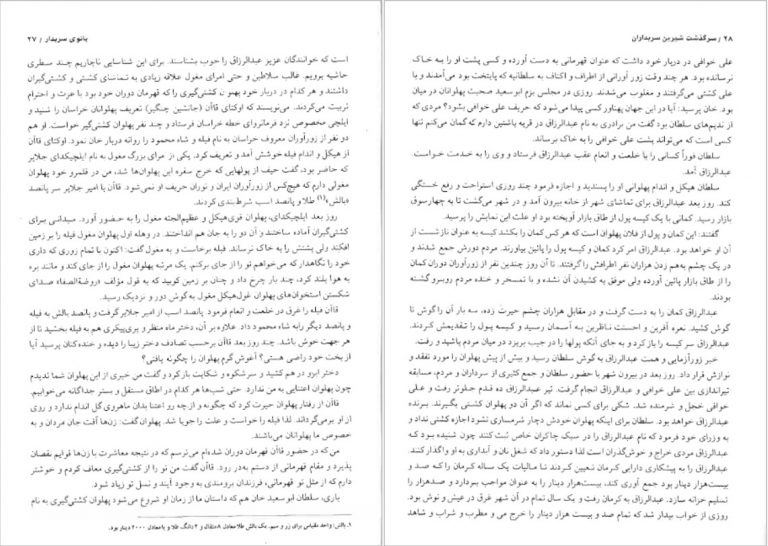 بانوی سربدار / ۲۷
است که خوانندگان عزیز عبدالرزاق را خوب بشناسند. برای این شناسایی ناچاریم چند سطری
حاشیه برویم. غالب سلاطین و حتی امرای مغول علاقه زیادی به تماشای کشتی و کشتی‌گیران
داشتند و هر کدام در دربار خود پهلوان کشتی‌گیری را که قهرمان دوران خود بود با عزت و احترام
تربیت می‌کردند. می‌نویسند که اوکتای قاآن (جانشین چنگیز) تعریف پهلوانان خراسان را شنید و
ایلچی مخصوص نزد فرمانروای خطه خراسان فرستاد و چند نفر پهلوان کشتی‌گیر خواست. او هم
دو نفر از زورآوران معروف خراسان به نام فیله و شاه محمود را روانه دربار خان نمود. اوکتای قاآن
از هیکل و اندام فیله خوشش آمد و تعریف کرد. یکی از امرای بزرگ مغول به نام ایلچیکدای جلایر
که حاضر بود، گفت حیف از پولهایی که خرج سفره این پهلوان‌ها شد، من در قلمرو خود پهلوان
مغولی دارم که هیچ‌کس از زورآوران ایران و توران حریف او نمی‌شود. قاآن با امیر جلایر سر پانصد
«بالش»(۱) طلا و پانصد اسب شرط‌بندی کردند.
روز بعد ایلچیکدای، پهلوان قوی‌هیکل و عظیم‌الجثه مغول را به حضور آورد. میدانی برای
کشتی‌گیران آماده ساختند و آن دو را به جان هم انداختند. در وهله اول پهلوان مغول فیله را بر زمین
افکند ولی پشتش را به خاک نرساند. فیله برخاست و به مغول گفت: اکنون با تمام زوری که داری
خود را نگاهدار که می‌خواهم تو را از جای برکنم. یک مرتبه پهلوان مغول را از جای کند و مانند بره
به هوا بلند کرد، چند بار چرخ داد و چنان بر زمین کوبید که به قول مؤلف «روضة‌الصفا» صدای
شکستن استخوان‌های پهلوان غول‌هیکل مغول به گوش دور و نزدیک رسید.
قاآن فیله را غرق در خلعت و انعام فرمود. پانصد اسب از امیر جلایر گرفت و پانصد بالش به فیله
و پانصد دیگر را به شاه محمود داد. علاوه بر آن، دختر ماه منظر و پری‌پیکری هم به فیله بخشید تا از
هر جهت خوش باشد. چند روز بعد قاآن برحسب تصادف دختر زیبا را دیده و خنده‌کنان پرسید آیا
از بخت خود راضی هستی؟ آغوش گرم پهلوان را چگونه یافتی؟
دختر ابرو در هم کشید و سر شکوه و شکایت باز کرد و گفت من خیری از این پهلوان شما ندیدم
چون پهلوان اعتنایی به من ندارد. حتی شب‌ها هر کدام در اطاق مستقل و بستر جداگانه می‌خوابیم.
قاآن از رفتار پهلوان حیرت کرد که چگونه و از چه رو اعتنا بدان ماهروی گل اندام ندارد و روی
از او برمی‌گرداند. لذا فیله را خواست و علت را جویا شد. پهلوان گفت: زن‌ها آفت جان مردان و به
خصوص ما پهلوانان می‌باشند.
من که در حضور قاآن قهرمان دوران شده‌ام می‌ترسم که در نتیجه معاشرت با زن‌ها قوایم نقصان
پذیرد و مقام قهرمانی از دستم به‌در رود. قاآن گفت من تو را از کشتی‌گیری معاف کردم و خوشتر
دارم که از مثل تو قهرمانی، فرزندان برومندی به وجود آیند و نسل تو زیاد شود.
باری، سلطان ابوسعید خان هم که داستان ما از زمان او شروع می‌شود پهلوان کشتی‌گیری به نام
۱. بالش: واحد مقیاس برای زر و سیم. یک بالش طلا معادل ۸ مثقال و ۲ دانگ طلا و یا معادل ۲۰۰۰ دینار بود.
۲۸ / سرگذشت شیرین سربداران
علی خوافی در دربار خود داشت که عنوان قهرمانی به دست آورده و کسی پشت او را به خاک
نرسانده بود. هر چند وقت زور آورانی از اطراف و اکناف به سلطانیه که پایتخت بود می‌آمدند و با
علی کشتی می‌گرفتند و مغلوب می‌شدند. روزی در مجلس بزم ابوسعید صحبت پهلوانان در میان
بود. خان پرسید: آیا در این جهان پهناور کسی پیدا می‌شود که حریف علی خوافی بشود؟ مردی که
از ندیم‌های سلطان بود گفت من برادری به نام عبدالرزاق در قریه باشتین دارم که گمان می‌کنم تنها
کسی است که می‌تواند پشت علی خوافی را به خاک برساند.
سلطان فوراً کسانی را با خلعت و انعام عقب عبدالرزاق فرستاد و وی را به خدمت خواست.
عبدالرزاق آمد.
سلطان هیکل و اندام پهلوانی او را پسندید و اجازه فرمود چند روزی استراحت و رفع خستگی
کند. روز بعد عبدالرزاق برای تماشای شهر از خانه بیرون آمد و در شهر می‌گشت تا به چهارسوق
بازار رسید. کمانی با یک کیسه پول از طاق بازار آویخته بود و او علت این نمایش را پرسید.
گفتند: این کمان و پول از فلان پهلوان است که هر کس کمان را بکشد کیسه به عنوان نازشست از
آن او خواهد بود. عبدالرزاق امر کرد کمان و کیسه پول را پائین بیاورند. مردم دورش جمع شدند و
در یک چشم به‌هم زدن هزاران نفر اطرافش را گرفتند. تا آن روز چندین نفر از زورآوران دوران کمان
را از طاق بازار پائین آورده ولی موفق به کشیدن آن نشده و با تمسخر و خنده مردم روبرو گشته
بودند.
عبدالرزاق کمان را به دست گرفت و در مقابل هزاران چشم حیرت زده، سه بار آن را گوش تا
گوش کشید. نعره آفرین و احسنت ناظرین به آسمان رسید و کیسه پول را تقدیمش کردند.
عبدالرزاق سر کیسه را باز کرد و به جای آنکه پولها را در جیب بریزد در میان مردم پاشید و رفت.
خبر زورآزمایی و همت عبدالرزاق به گوش سلطان رسید و بیش از پیش پهلوان را مورد تفقد و
نوازش قرار داد. روز بعد در بیرون شهر با حضور سلطان و جمع کثیری از سرداران و مردم، مسابقه
تیراندازی بین علی خوافی و عبدالرزاق انجام گرفت. تیر عبدالرزاق ده قدم جلوتر رفت و علی
خوافی خجل و شرمنده شد. شکی برای کسی نماند که اگر آن دو پهلوان کشتی بگیرند. برنده
عبدالرزاق خواهد بود. سلطان برای اینکه پهلوان خودش دچار شرمساری نشود اجازه کشتی نداد و
به وزرای خود فرمود که نام عبدالرزاق را در سبک چاکران خاص ثبت کنند چون شنیده بود که
عبدالرزاق مردی خراج و خوش‌گذران است لذا دستور داد که شغل نان و آبداری به او واگذار کنند
عبدالرزاق را به پیشکاری دارایی کرمان تعیین کردند تا مالیات یک ساله کرمان را که صد و
بیست‌هزار دینار بود جمع آوری کند، بیست‌هزار دینار را به عنوان مواجب بردارد و صدهزار را
تسلیم خزانه سازد. عبدالرزاق به کرمان رفت و یک سال تمام در آن شهر غرق در عیش و نوش بود.
روزی از خواب بیدار شد که تمام صد و بیست هزار دینار را خرج می و مطرب و شراب و شاهد